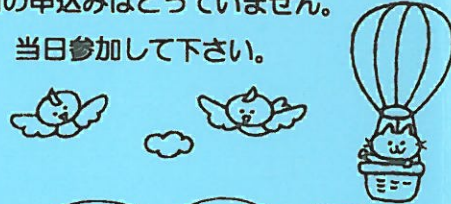 の申込みはとっていません。
当日参加して下さい。